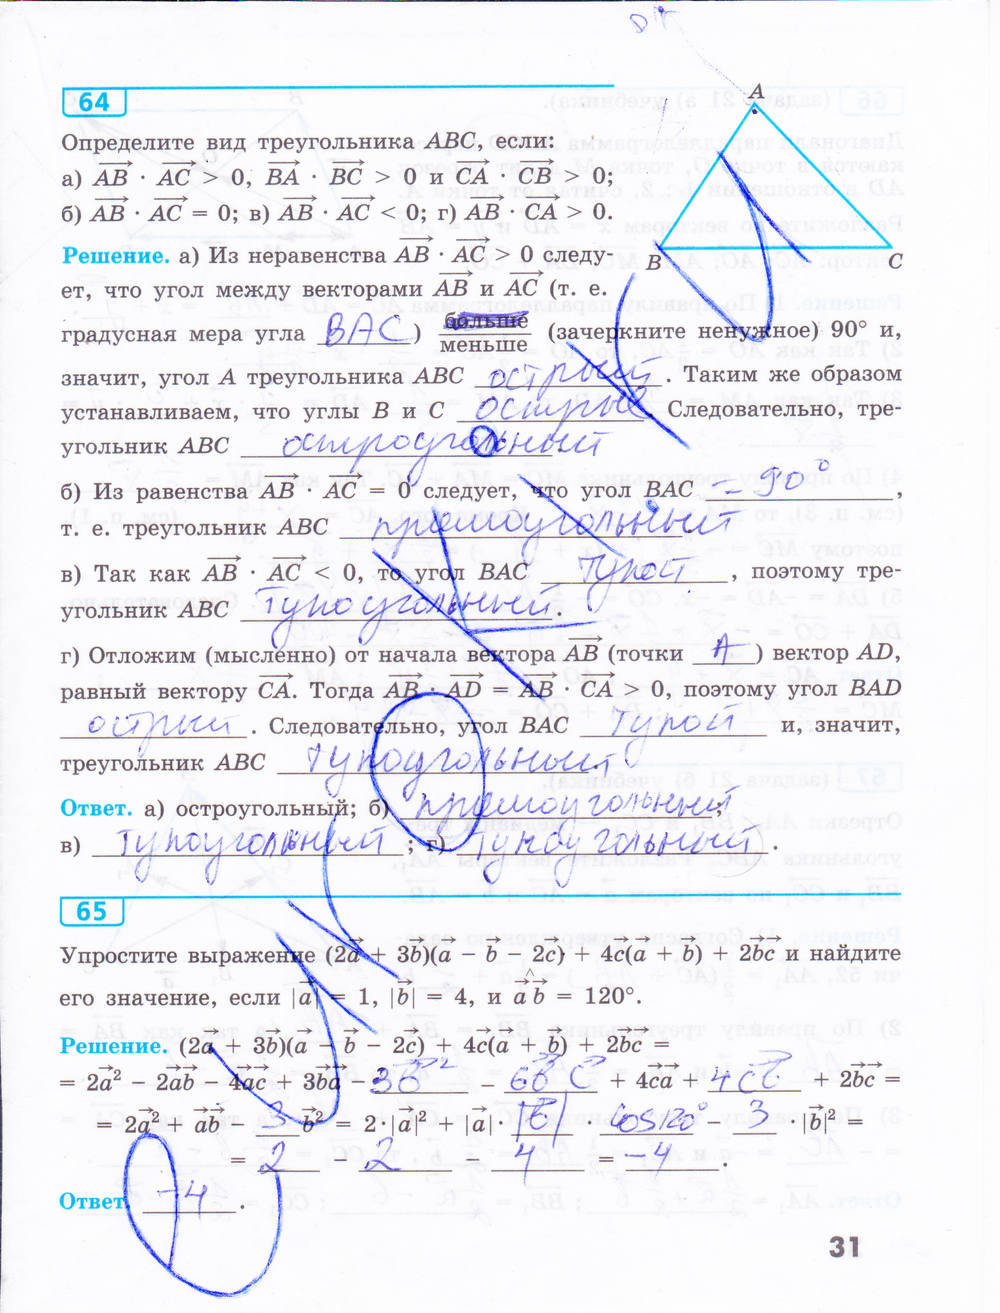 64
A
Определите вид треугольника ABC, если:
а) AB · AC > 0, BA · BC > 0 и CA · CB > 0;
б) AB · AC = 0; в) AB · AC < 0; г) AB · CA > 0.
B C
Решение. а) Из неравенства AB · AC > 0 следу-
ет, что угол между векторами AB и AC (т. е.
градусная мера угла BAC) больше
меньше (зачеркните ненужное) 90° и,
значит, угол A треугольника ABC острый. Таким же образом
устанавливаем, что углы B и C острые. Следовательно, тре-
угольник ABC остроугольный
б) Из равенства AB · AC = 0 следует, что угол BAC = 90°,
т. е. треугольник ABC прямоугольный
в) Так как AB · AC < 0, то угол BAC тупой, поэтому тре-
угольник ABC тупоугольный.
г) Отложим (мысленно) от начала вектора AB (точки A) вектор AD,
равный вектору CA. Тогда AB · AD = AB · CA < 0, поэтому угол BAD
острый. Следовательно, угол BAC тупой и, значит,
треугольник ABC тупоугольный.
Ответ. а) остроугольный; б) прямоугольный;
в) тупоугольный; г) тупоугольный.
65
Упростите выражение (2a + 3b)(a − b − 2c) + 4c(a + b) + 2bc и найдите
его значение, если |a| = 1, |b| = 4, и a^b = 120°.
Решение. (2a + 3b)(a − b − 2c) + 4c(a + b) + 2bc =
= 2a² − 2ab − 4ac + 3ba − 3b² − 6bc + 4ca + 4cc + 2bc =
= 2a² + ab − 3b² = 2·|a|² + |a|·|b| · cos120° − 3 ·|b|² =
= 2 − 2 − 4 = −4.
Ответ. −4.
31